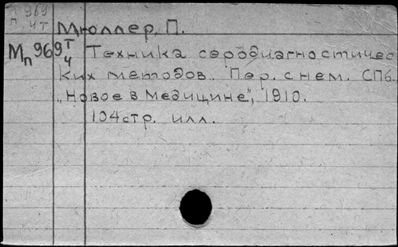 П 969
П чТ
Мюллер, П.
Мп 969Т Техника серодиагностичес
ч ких методов. Пер. с нем. СПб.
„Новое в медицине", 1910.
104стр. илл.